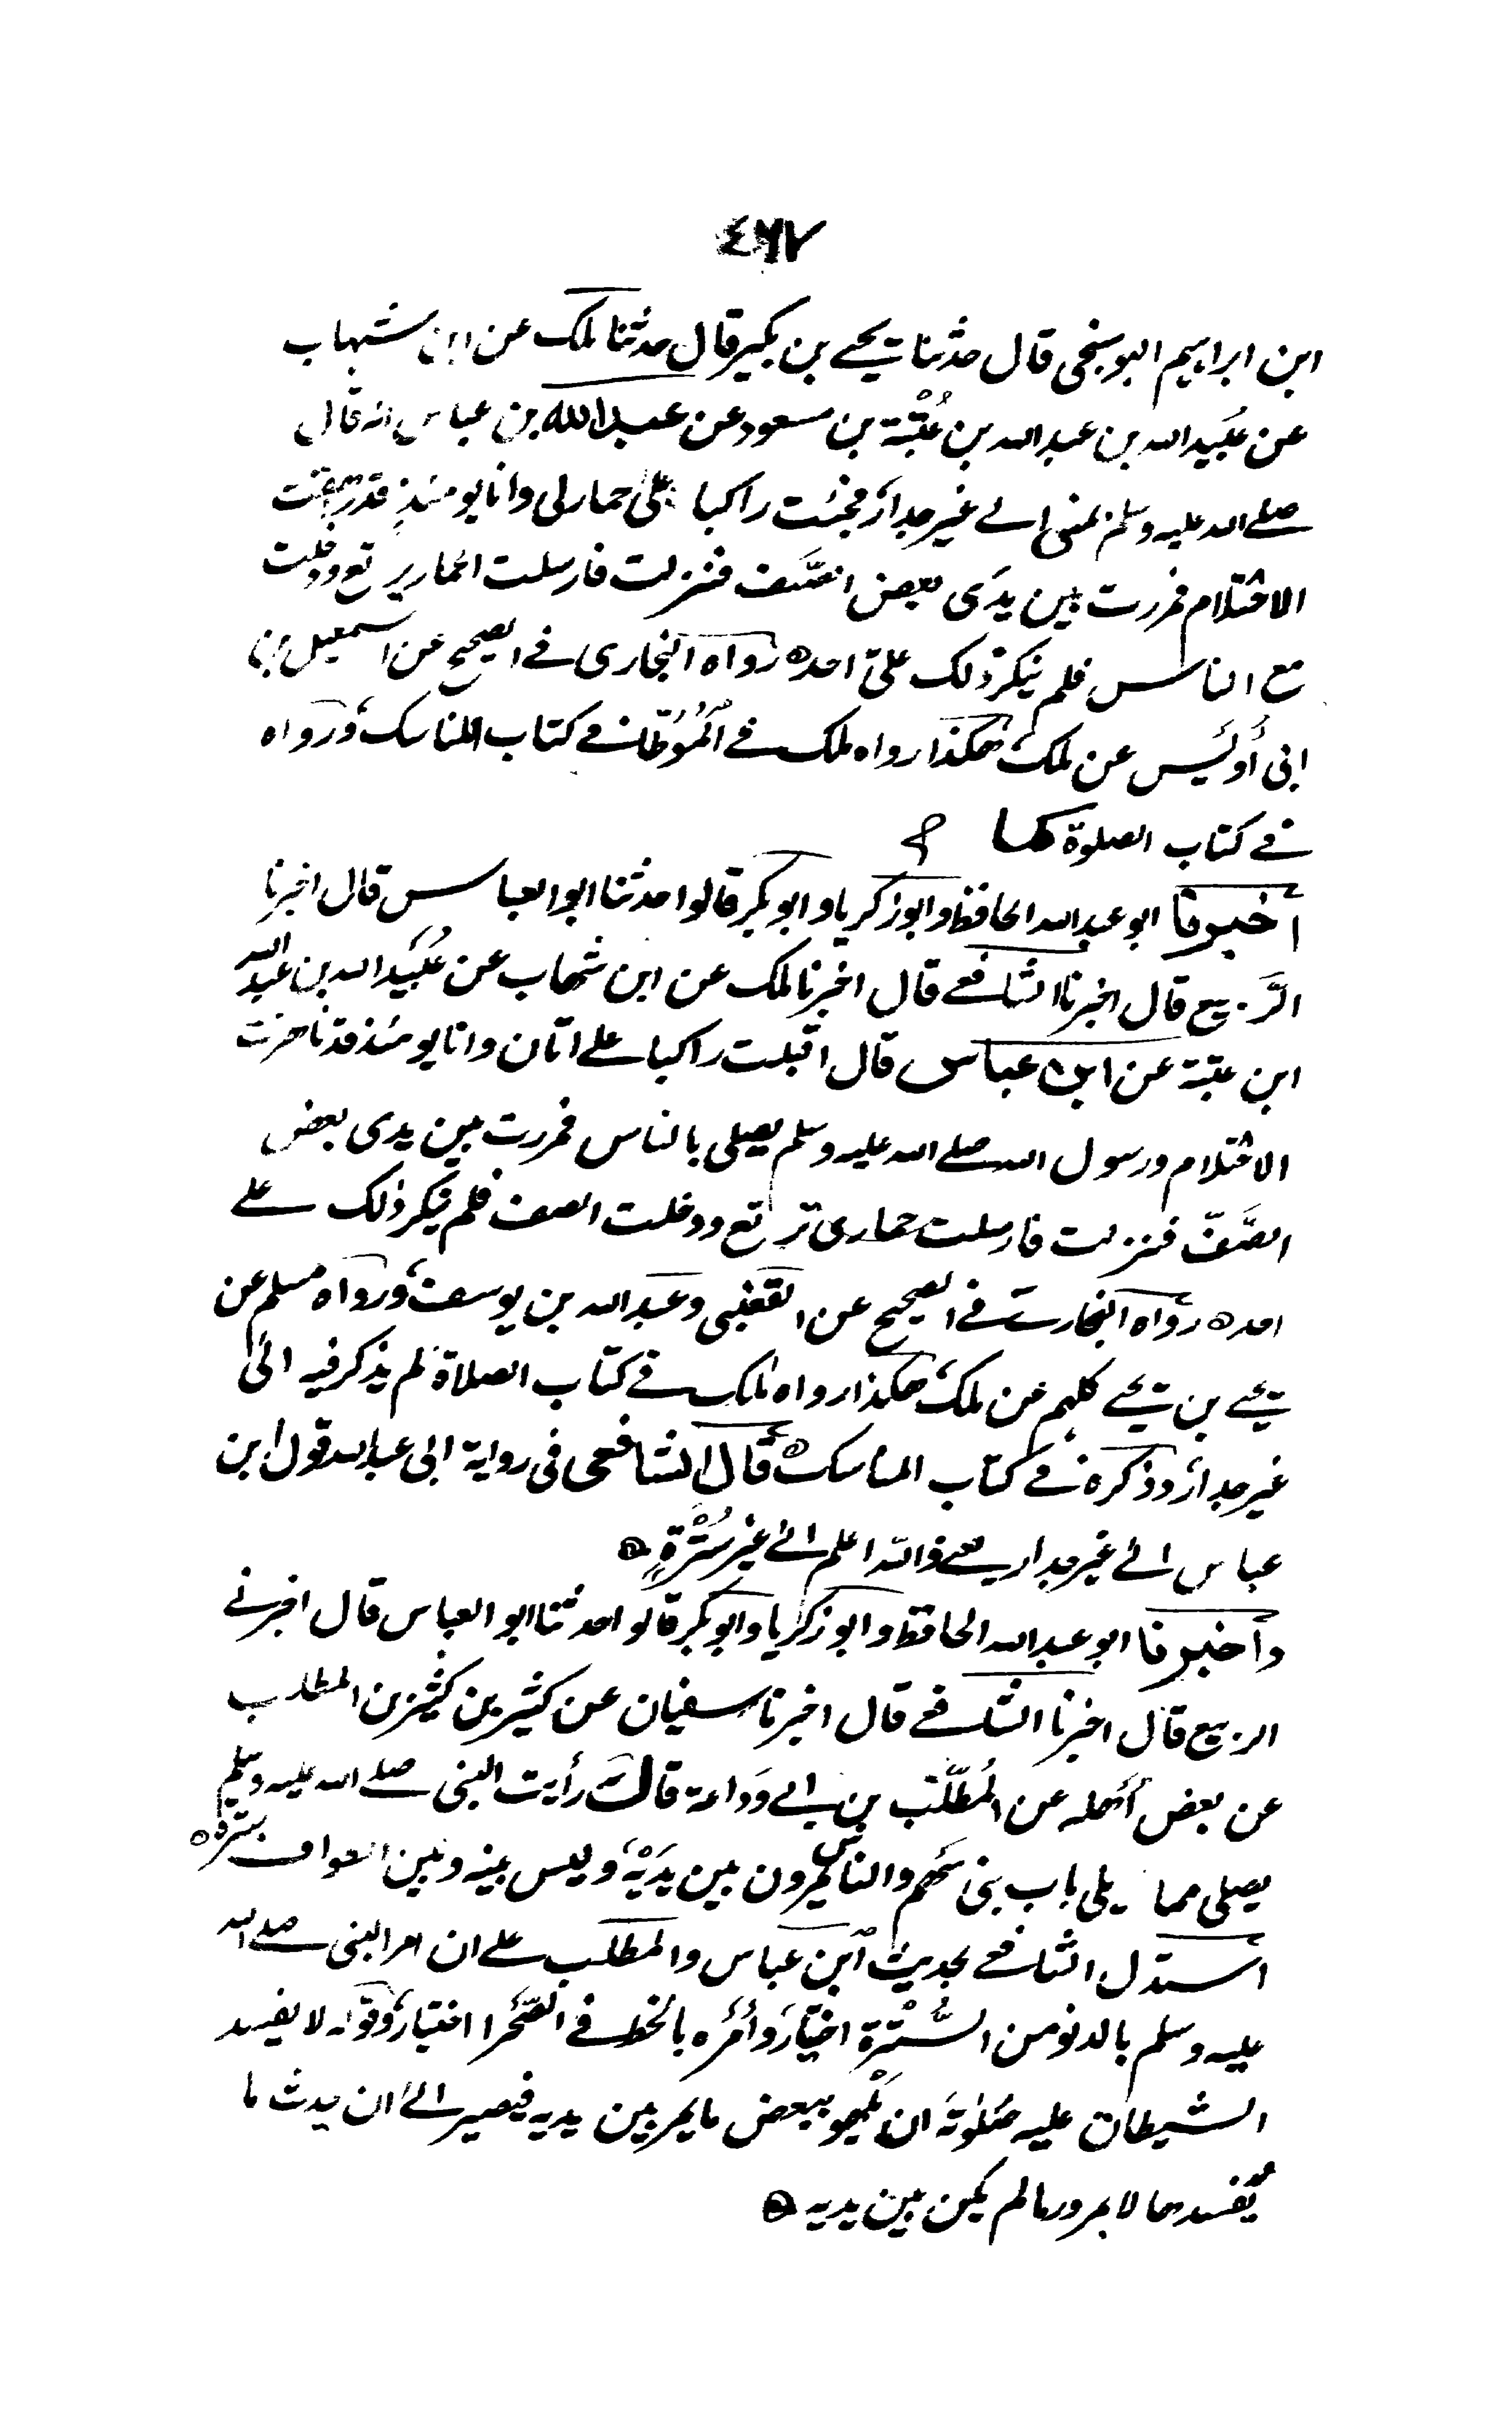 ٤٦٧
ابن ابراہیم البوسنجی قال حدثنا یحیے بن بکیر قال حدثنا ملک عن ابن شہاب
عن عُبَید الله بن عبد الله بن عُتْبَة بن مسعود عن عبد الله بن عباس انہ قال
صلے الله علیہ وسلم بمنی الے غیر جدار فجئت راکبا علیٰ حمار لی وانا یومئذٍ قد راہقت
الاحتلام فمررت بین یدَی بعض الصَّف فنزلت فارسلت الحمار یرتع ودخلت
مع الناس فلم ینکر ذلک علیّ احد ه رواہ البخاری فے الصحیح عن اسمعیل بن
ابی أُوَیس عن ملک ھکذا رواہ ملک فے المُؤَطَّا فے کتاب المناسک ورواہ
فے کتاب الصلوة کما
أخبرنا ابو عبد الله الحافظ وابو زکریا وابو بکر قالوا حدثنا ابو العباس قال اخبرنا
الرَّبیع قال اخبرنا الشافعے قال اخبرنا ملک عن ابن شھاب عن عُبَید الله بن عبد الله
ابن عتبة عن ابن عباس قال اقبلت راکبا علے اتان وانا یومئذ قد ناھزت
الاحتلام ورسول الله صلے الله علیہ وسلم یصلی بالناس فمررت بین یدی بعض
الصَّفّ فنزلت فارسلت حماری ترتع ودخلت الصف فلم ینکر ذلک علے
احد ه رواہ البخاری فے الصحیح عن القعنبی وعبد الله بن یوسف ورواہ مسلم عن
یحیے بن یحیے کلہم عن ملک ھکذا رواہ ملک فے کتاب الصلاة لم یذکر فیہ الیٰ
غیر جدار وذکرہ فے کتاب المناسک ه قال الشافعی فی روایة ابی عبد الله قول ابن
عباس الے غیر جدار یعنے والله اعلم الے غیر سُتْرةٍ ه
وأخبرنا ابو عبد الله الحافظ وابو زکریا وابو بکر قالوا حدثنا ابو العباس قال اخبرنے
الربیع قال اخبرنا الشافعے قال اخبرنا سفیان عن کثیر بن کثیر بن المطلب
عن بعض أھلہ عن المُطَّلِب بن ابے وَدَاعة قال رأیت النبی صلے الله علیہ وسلم
یصلی مما یلی باب بنی سَھم والناس یمرون بین یدَیْہ ولیس بینہ وبین الطواف سترة ه
استدل الشافعے بحدیث ابن عباس والمطلب علے ان امر النبی صلے الله
علیہ وسلم بالدنو من السُّتْرة اختیار وأمْرَہ بالخط فے الصَّحرا اختیار وقولہ لا یفسد
الشیطان علیہ صَلٰوتَہ ان یَلْھو ببعض ما یمر بین یدیہ فیصیر الے ان یحدث ما
یُفسدھا لا بمرور ما لم یکن بین یدیہ ه